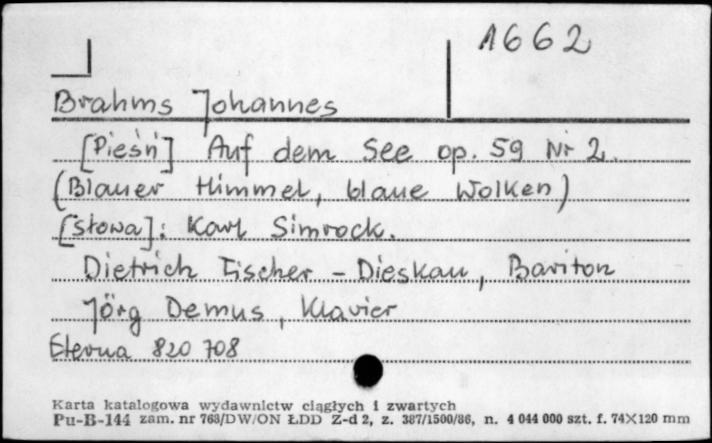 1662
Brahms Johannes
[Pieśń] Auf dem See op. 59 Nr 2.
(Blauer Himmel, blaue Wolken)
[słowa]: Karl Simrock.
Dietrich Fischer - Dieskau, Bariton
Jörg Demus, Klavier
Eterna 820 708
Karta katalogowa wydawnictw ciągłych i zwartych
Pu-B-144 zam. nr 763/DW/ON ŁDD Z-d 2, z. 387/1500/86, n. 4 044 000 szt. f. 74X120 mm